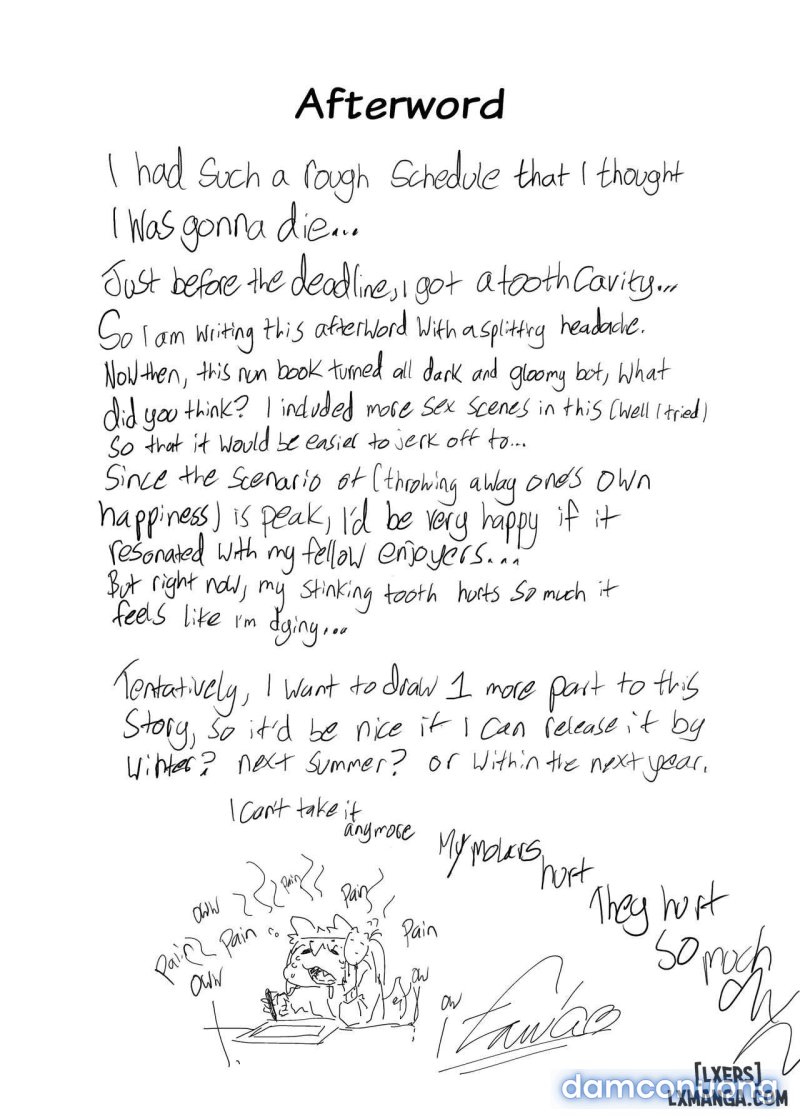 Afterword
I had such a rough schedule that I thought
I was gonna die...
Just before the deadline, I got a tooth cavity...
So I am writing this afterword with a splittry headache.
Now then, this nun book turned all dark and gloomy bot, what
did you think? I included more sex scenes in this (well I tried)
so that it would be easier to jerk off to...
Since the scenario of (throwing away one's own
happiness) is peak, I'd be very happy if it
resonated with my fellow enjoyers...
But right now, my stinking tooth hurts so much it
feels like I'm dying...
Tentatively, I want to draw 1 more part to this
story, so it'd be nice if I can release it by
winter? next summer? or within the next year.
I can't take it
anymore
My molars
hurt
They hurt
so much
Pain
Pain
oww
Pain
Pain
Pain
oww
ow
ow
[LXERS]
damconuong
LXMANGA.COM